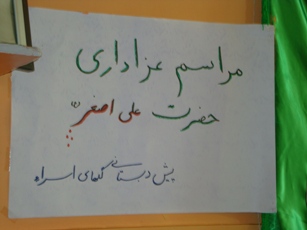 مراسم عزاداری
حضرت علی اصغر
پیش دبستانی گلهای اسراء